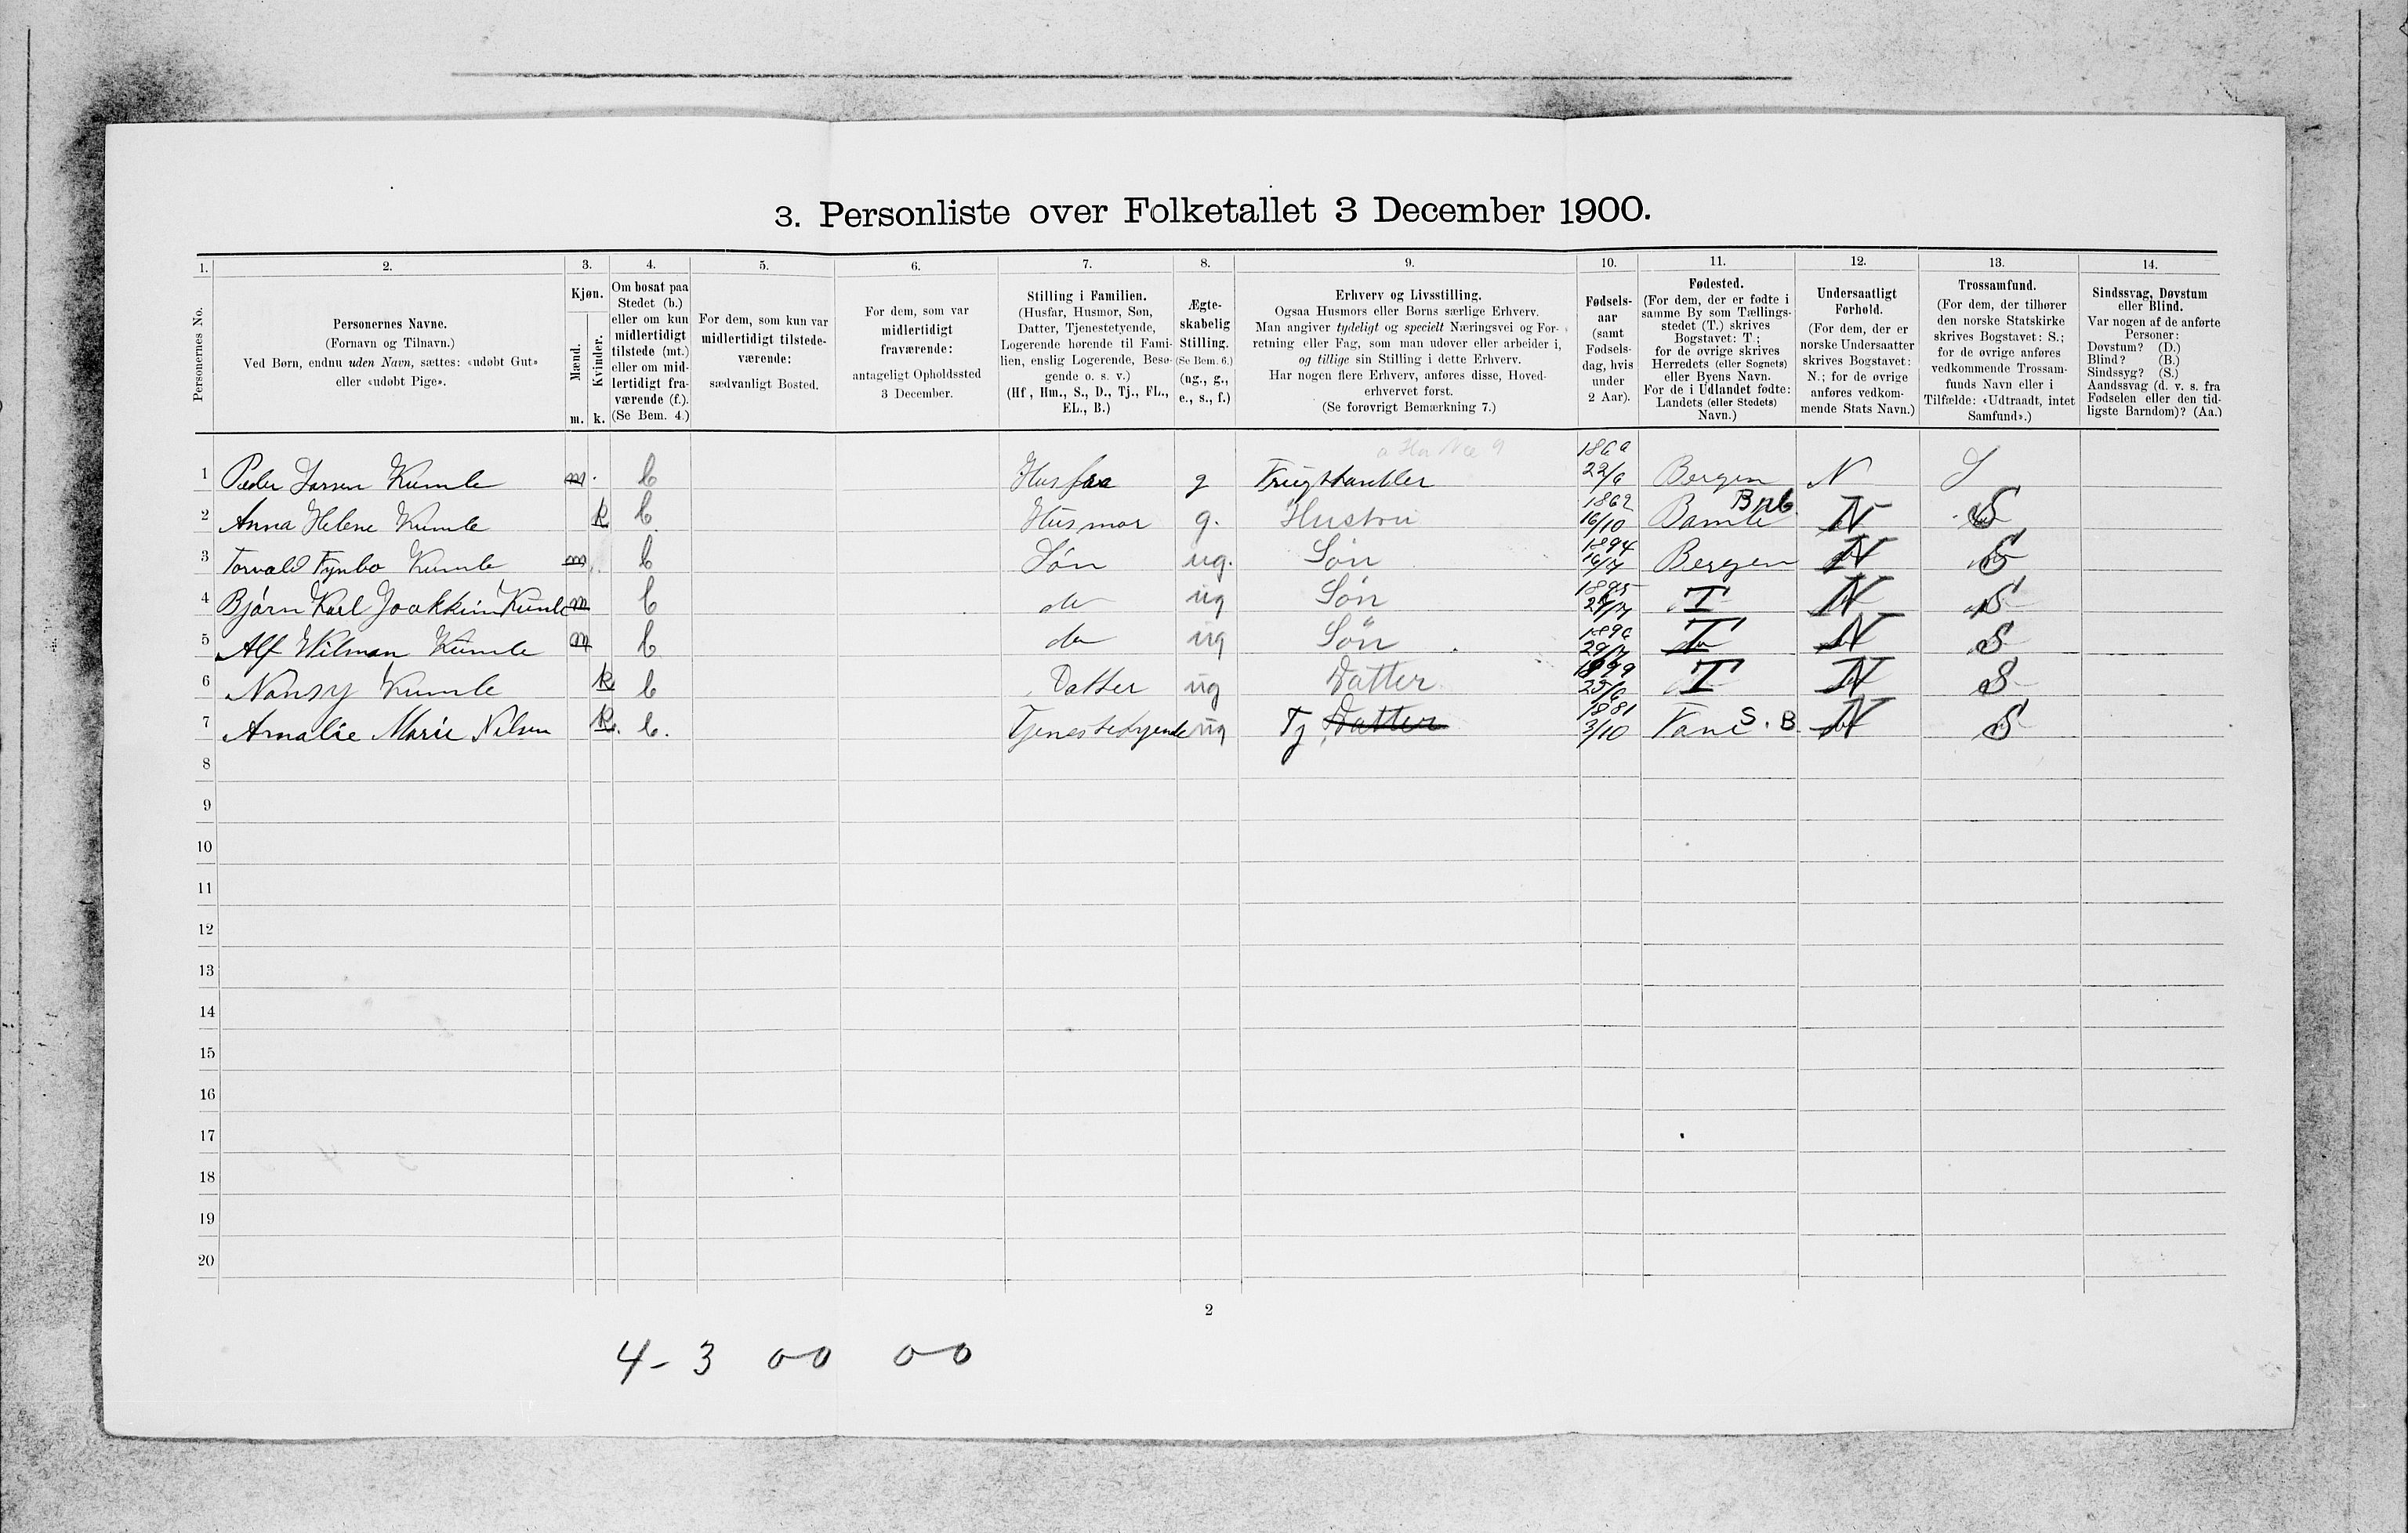 3. Personliste over Folketallet 3 December 1900.
1. 2. 3. 4. 5. 6. 7. 8. 9. 10. 11. 12. 13. 14.
Personernes No.
Personernes Navne.
(Fornavn og Tilnavn.)
Ved Børn, endnu uden Navn, sættes: «udøbt Gut»
eller «udøbt Pige».
Kjøn.
Mænd.
Kvinder.
m. k.
Om bosat paa
Stedet (b.)
eller om kun
midlertidigt
tilstede (mt.)
eller om mid-
lertidigt fra-
værende (f.).
(Se Bem. 4.)
For dem, som kun var
midlertidigt tilstede-
værende:
sædvanligt Bosted.
For dem, som var
midlertidigt
fraværende:
antageligt Opholdssted
3 December.
Stilling i Familien.
(Husfar, Husmor, Søn,
Datter, Tjenestetyende,
Logerende hørende til Fami-
lien, enslig Logerende, Besø-
gende o. s. v.)
(Hf, Hm., S., D., Tj., FL.,
EL., B.)
Ægte-
skabelig
Stilling.
(Se Bem. 6.)
(ug., g.,
e., s., f.)
Erhverv og Livsstilling.
Ogsaa Husmors eller Børns særlige Erhverv.
Man angiver tydeligt og specielt Næringsvei og For-
retning eller Fag, som man udøver eller arbeider i,
og tillige sin Stilling i dette Erhverv.
Har nogen flere Erhverv, anføres disse, Hoved-
erhvervet først.
(Se forøvrigt Bemærkning 7.)
Fødsels-
aar
(samt
Fødsels-
dag, hvis
under
2 Aar).
Fødested.
(For dem, der er fødte i
samme By som Tællings-
stedet (T.) skrives
Bogstavet: T.;
for de øvrige skrives
Herredets (eller Sognets)
eller Byens Navn.
For de i Udlandet fødte:
Landets (eller Stedets)
Navn.)
Undersaatligt
Forhold.
(For dem, der er
norske Undersaatter
skrives Bogstavet:
N.; for de øvrige
anføres vedkom-
mende Stats Navn.)
Trossamfund.
(For dem, der tilhører
den norske Statskirke
skrives Bogstavet: S.;
for de øvrige anføres
vedkommende Trossam-
funds Navn eller i
Tilfælde: «Udtraadt, intet
Samfund».)
Sindssvag, Døvstum
eller Blind.
Var nogen af de anførte
Personer:
Døvstum? (D.)
Blind? (B.)
Sindssyg? (S.)
Aandssvag (d. v. s. fra
Fødselen eller den tid-
ligste Barndom)? (Aa.)
1 Peder Larsen Kumle m. b Husfar g 22/6 Bergen N S
2 Anna Helene Kumle k b. Husmor g. Hustru 1862 16/10 Bamle Brb. N S
3 Torvald Fynbo Kumle m b Søn ug. Søn 1894 Bergen N S
4 Bjørn Karl Joakkim Kumle m b do ug Søn 1895 T N S
5 Alf Wilman Kumle m b do ug Søn 1896 29/7 T N S
6 Nansy Kumle k b Datter ug Datter 25/6 T N S
7 Amalie Marie Nilsen k. b. Tjenestetyende ug Tj Datter 1881 3/10 Fane S. B. N S
8
9
10
11
12
13
14
15
16
17
18
19
20
2
4-3 00 00